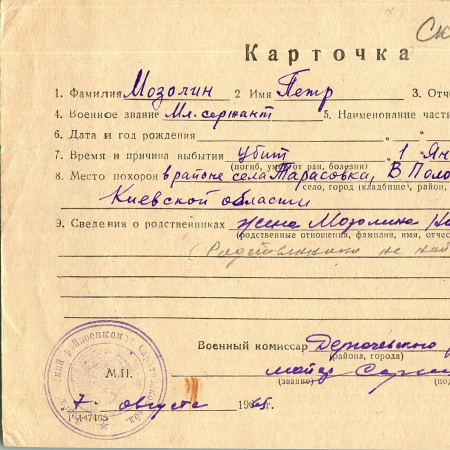 Ск
Карточка
1. Фамилия Мозолин 2 Имя Петр 3. Отч
4. Военное звание Мл. сержант 5. Наименование част
6. Дата и год рождения " "
7. Время и причина выбытия убит " 1 " Ян
(погиб, умер от ран, болезни)
8. Место похорон в районе села Тарасовка, В Поло
село, город (кладбище), район,
Киевской области
9. Сведения о родственниках жена Мозолина
(родственные отношения, фамилия, имя, отчес
(Родственники не най
Военный комиссар
(района, города)
майор
(звание) (по
М.П.
7 августа 1965г.